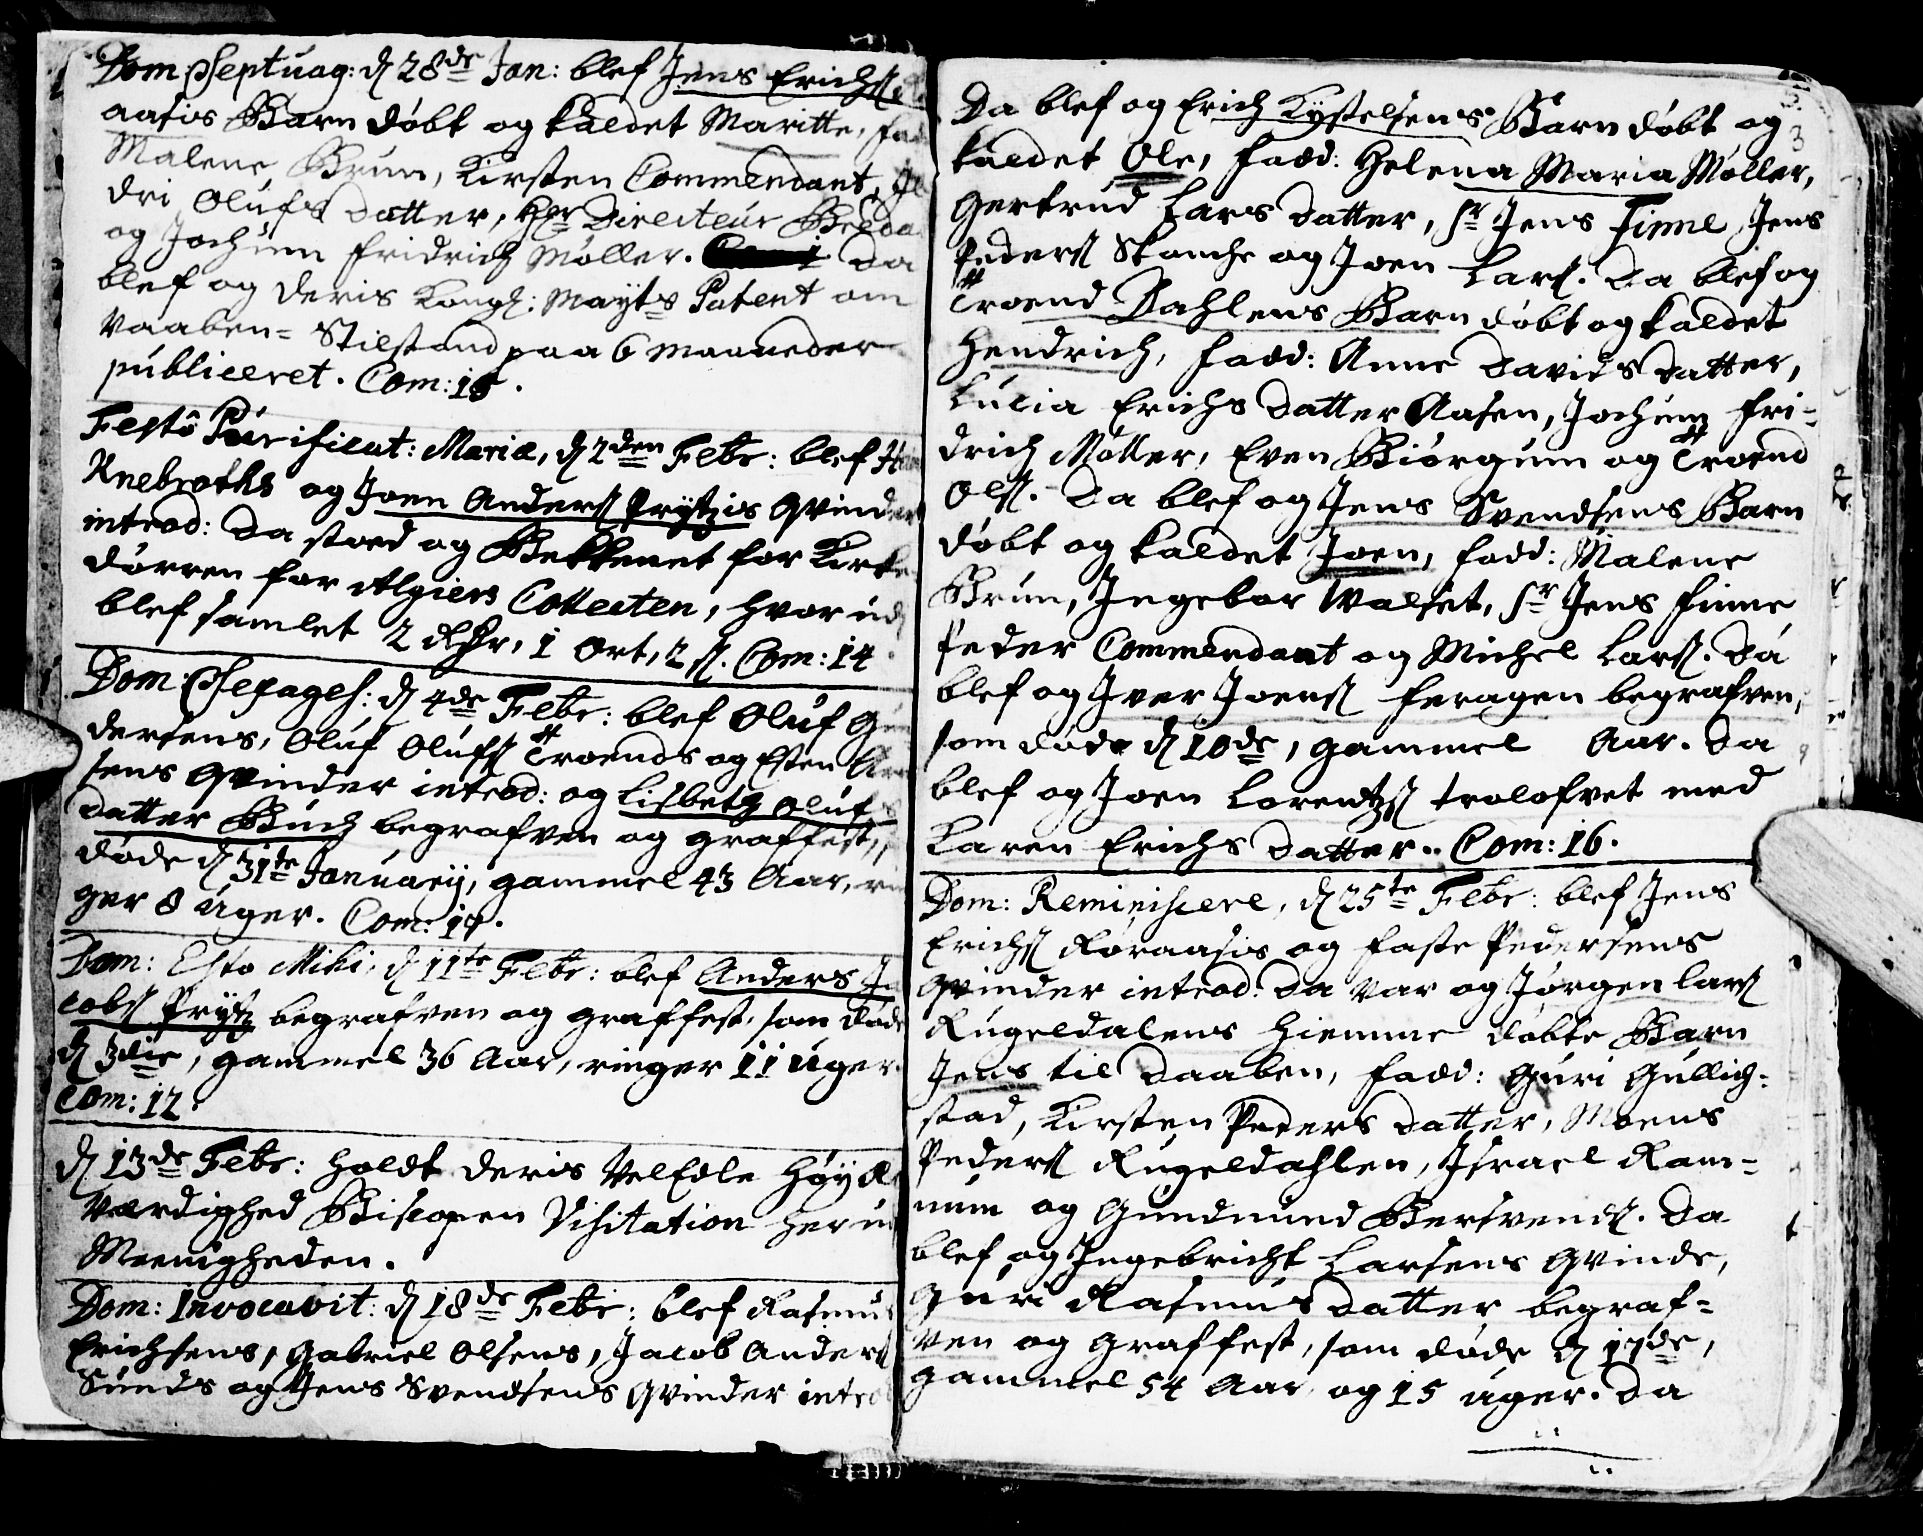 Dom: Septuag: d 28de Jan: blef Jens Erichs
aasis Barn døbt og kaldet Maritte, fad
Malene Brun, Kirsten Commendant,
dri Olufs datter, Hr Directeur
og Jochum Fridrich Møller. da
blef og deris Kongl: Mayts Patent om
Vaaben= Stilstand paa 6 maaneder
publiceret. Com: 18.
Festo Purificat: Mariæ, d 2den Febr: blef
Knebroths og Joen Anders Prytzis Qvinder
introd: da stoed og Bekkenet for Kirke
dørren for Algiers Collecten, hvor ud
blef samlet 2 dhr, 1 Ort, 2 s. Com: 14
Dom: Sexages: d 4de Febr: blef Oluf
dersens, Oluf Olufs Troends og Esten
sens Qvinder introd: og Lisbeth Olufs
datter Buch begrafven og graffest,
døde d 31te January, gammel 43 Aar,
ger 8 uger. Com: 19.
Dom: Esto Mihi, d 11te Febr: blef Anders Ja
cobs Prytz begrafven og graffest, som døde
d 3die, gammel 36 Aar, ringer 11 uger.
Com: 12.
d 13de Febr: holdt deris VelEdle Høy
Værdighed Biscopen Visitation her i
Meenigheden.
Dom: Invocavit: d 18de Febr: blef Rasmus
Erichsens, Gabriel Olsens, Jacob Anders
Sunds og Jens Svendsens Qvinder introd
3
Da blef og Erich Kystelsens Barn døbt og
kaldet Ole, fadd: Helena Maria Møller,
Gertrud Lars datter, Sr Jens Finne, Jens
Peders Skanche og Joen Lars. Da blef og
Troend Dahlens Barn døbt og kaldet
Hendrich, fadd: Anne Davids datter,
Lucia Erichs datter Aasen, Jochum Fri=
drich Møller, Even Biørgum og Troend
Ols. Da blef og Jens Svendsens Barn
døbt og kaldet Joen, fadd: Malene
Brun, Ingebor Walset, Sr Jens Finne
Peder Commendant og Michel Lars. Da
blef og Iver Joens Feragen begrafven,
som døde d 10de, gammel Aar. Da
blef og Joen Lorentzs trolofvet med
Karen Erichs datter. Com: 16.
Dom: Reminiscere, d 25te Febr: blef Jens
Erichs Røraasis og Faste Pedersens
Qvinder introd: Da var og Jørgen Lars
Rugeldalens hiemme døbte Barn
Jens til Daaben, fadd: Guri Gullich=
stad, Kirsten Peders datter, Moens
Peders Rugeldahlen, Israel Ram=
num og Gundmund Bersvends. Da
blef og Ingebricht Larsens Qvinde,
Guri Rasmus datter begraf=
ven og graffest, som døde d 17de,
gammel 54 Aar og 15 uger. Da